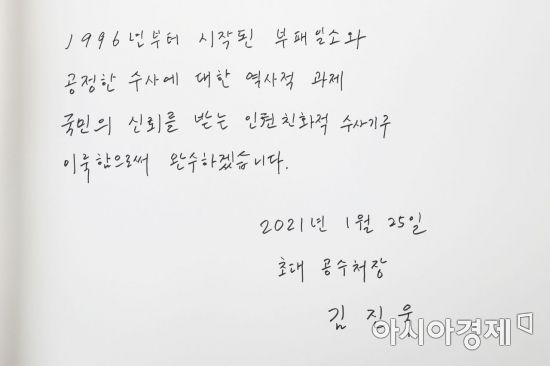 1996년부터 시작된 부패일소와
공정한 수사에 대한 역사적 과제
국민의 신뢰를 받는 인권친화적 수사기구
이룩함으로써 완수하겠습니다.
2021년 1월 25일
초대 공수처장
김진욱
아시아경제